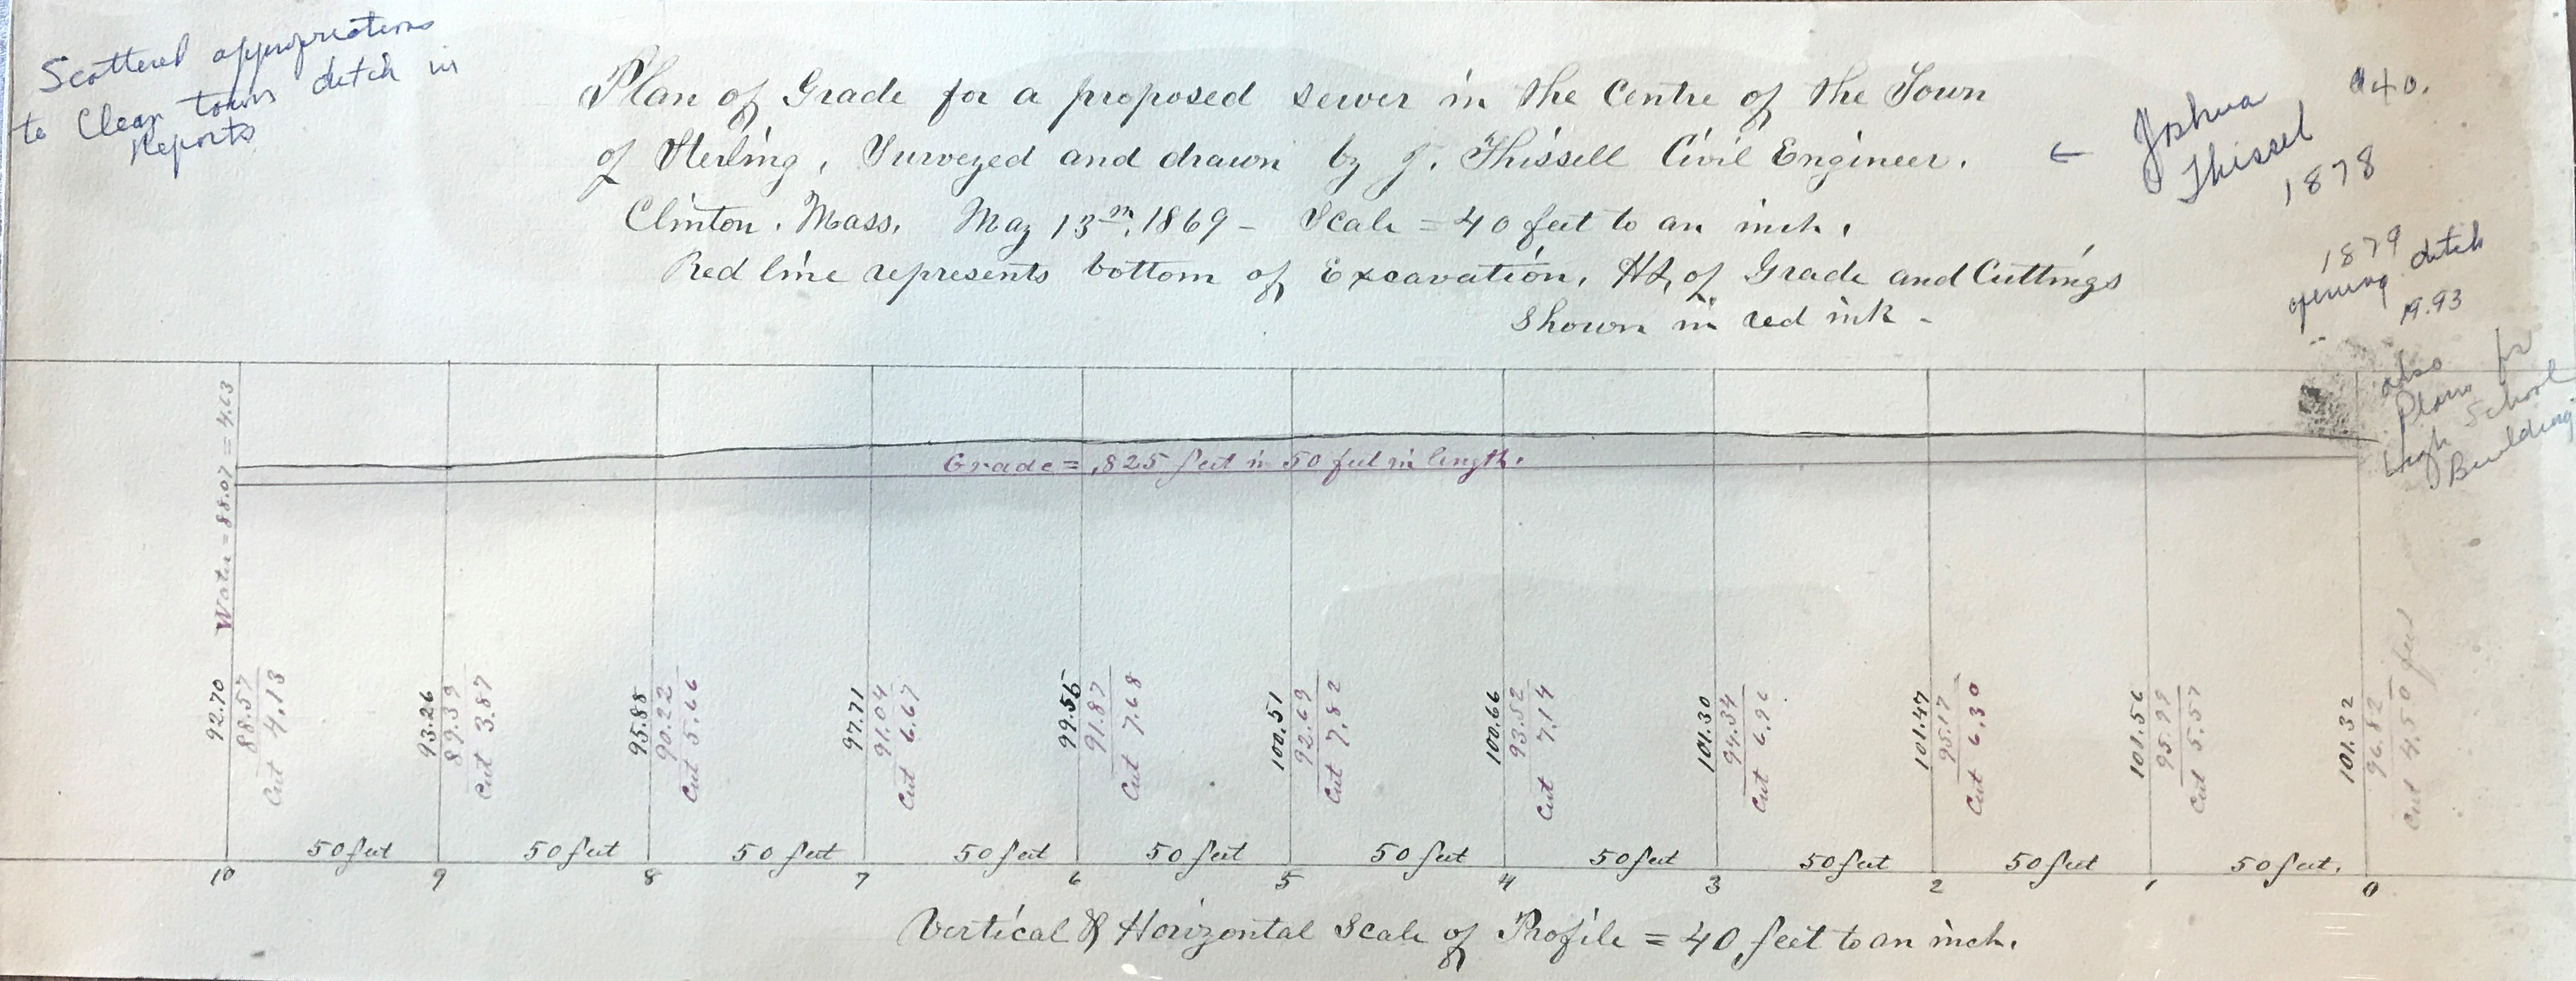 Scattered appropriations
to Clean town ditch in
Reports
Plan of Grade for a proposed sewer in the Centre of the Town
of Sterling, Surveyed and drawn by J. Thissell Civil Engineer.
Clinton, Mass, May 13th, 1869 - Scale = 40 feet to an inch,
Red line represents bottom of Excavation, Ht, of Grade and Cuttings
shown in red ink -
40.
← Joshua
Thissel
1878
1879
opening ditch
19.93
also
Plans for
High School
Building
Water = 88.07 = 4.63
Grade = ,825 feet in 50 feet in length.
92.70
88.57
Cut 4.13
93.26
89.39
Cut 3.87
95.88
90.22
Cut 5.66
97.71
91.04
Cut 6.67
99.55
91.87
Cut 7.68
100.51
92.69
Cut 7.82
100.66
93.52
Cut 7.14
101.30
94.34
Cut 6.96
101.47
95.17
Cut 6.30
101.56
95.99
Cut 5.57
101.32
96.82
Cut 4.50 feet
50 feet 50 feet 50 feet 50 feet 50 feet 50 feet 50 feet 50 feet 50 feet 50 feet.
10 9 8 7 6 5 4 3 2 1 0
Vertical & Horizontal Scale of Profile = 40 feet to an inch.